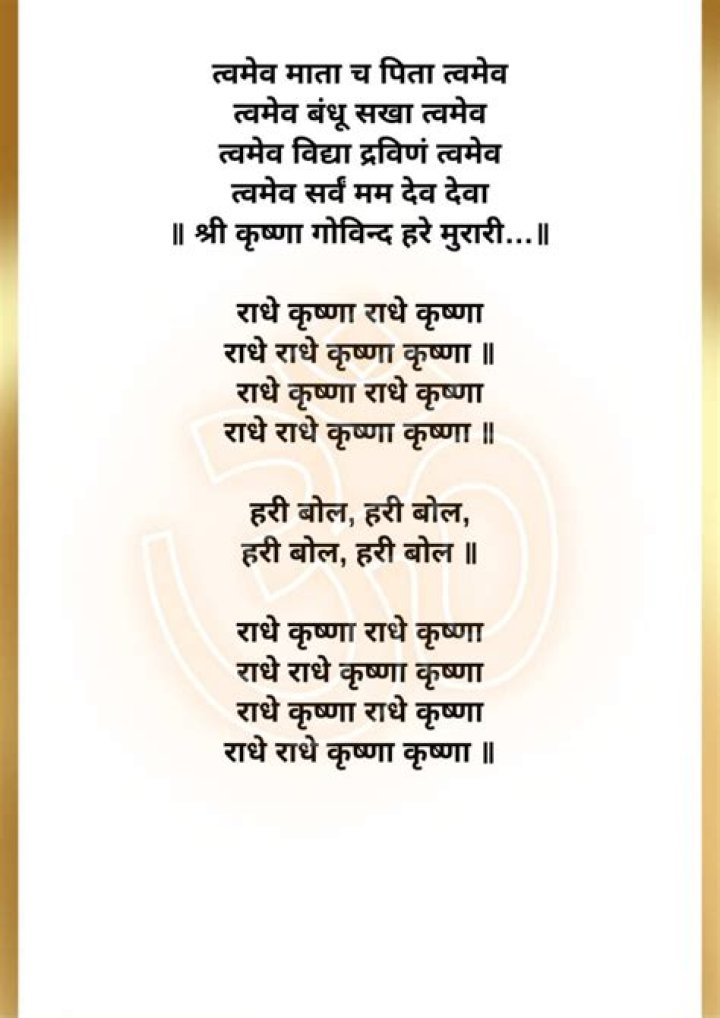 त्वमेव माता च पिता त्वमेव
त्वमेव बंधू सखा त्वमेव
त्वमेव विद्या द्रविणं त्वमेव
त्वमेव सर्वं मम देव देवा
॥ श्री कृष्णा गोविन्द हरे मुरारी...॥
राधे कृष्णा राधे कृष्णा
राधे राधे कृष्णा कृष्णा ॥
राधे कृष्णा राधे कृष्णा
राधे राधे कृष्णा कृष्णा ॥
हरी बोल, हरी बोल,
हरी बोल, हरी बोल ॥
राधे कृष्णा राधे कृष्णा
राधे राधे कृष्णा कृष्णा
राधे कृष्णा राधे कृष्णा
राधे राधे कृष्णा कृष्णा ॥